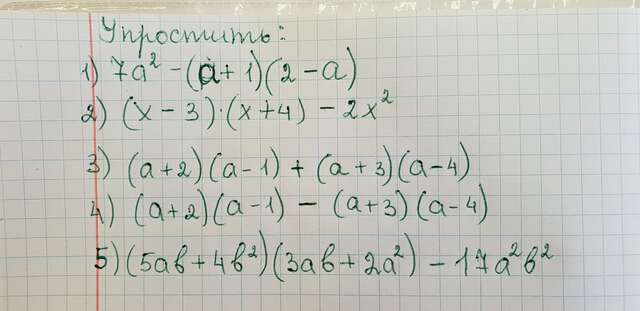 Упростить:
1) 7a² - (a+1)(2-a)
2) (x-3)·(x+4) - 2x²
3) (a+2)(a-1) + (a+3)(a-4)
4) (a+2)(a-1) - (a+3)(a-4)
5) (5ab+4b²)(3ab+2a²) - 17a²b²